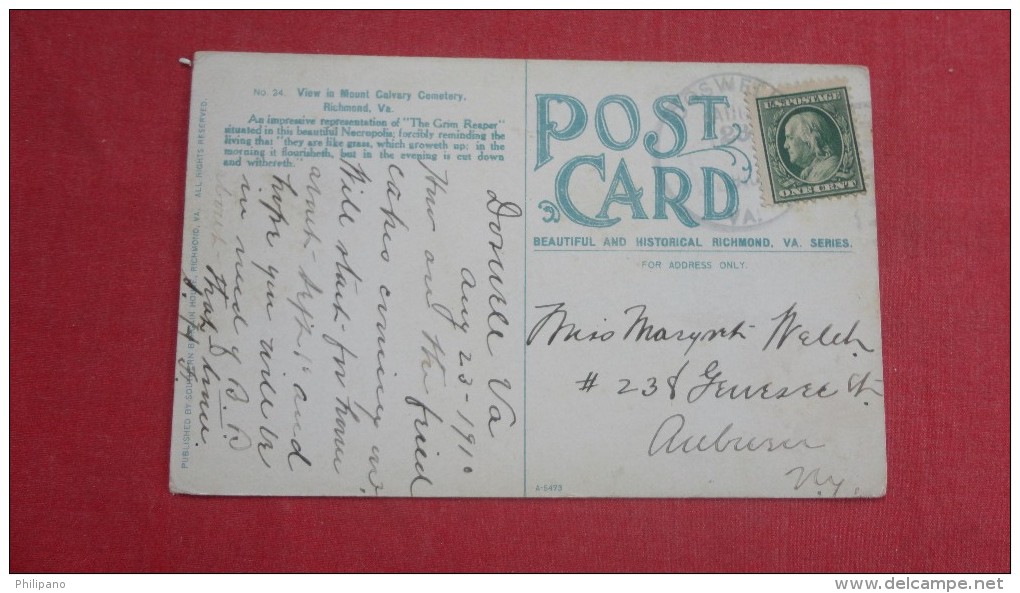 No. 24. View in Mount Calvary Cemetery,
Richmond, Va.
An impressive representation of "The Grim Reaper"
situated in this beautiful Necropolis; forcibly reminding the
living that "they are like grass, which groweth up: in the
morning it flourisheth, but in the evening is cut down
and withereth."
PUBLISHED BY SOUTHERN HOUSE, RICHMOND, VA. ALL RIGHTS RESERVED.
Va
Aug 23-1910
How are the fried
cakes coming on.
Will start for home
about Sept and
hope you will be
in need of
about that time.
POST
CARD
BEAUTIFUL AND HISTORICAL RICHMOND, VA. SERIES.
FOR ADDRESS ONLY.
VA.
U.S. POSTAGE
ONE CENT
Miss Welch
# 238 Genesee St.
Auburn
N.Y.
A-5473
Philipano
www.delcampe.net